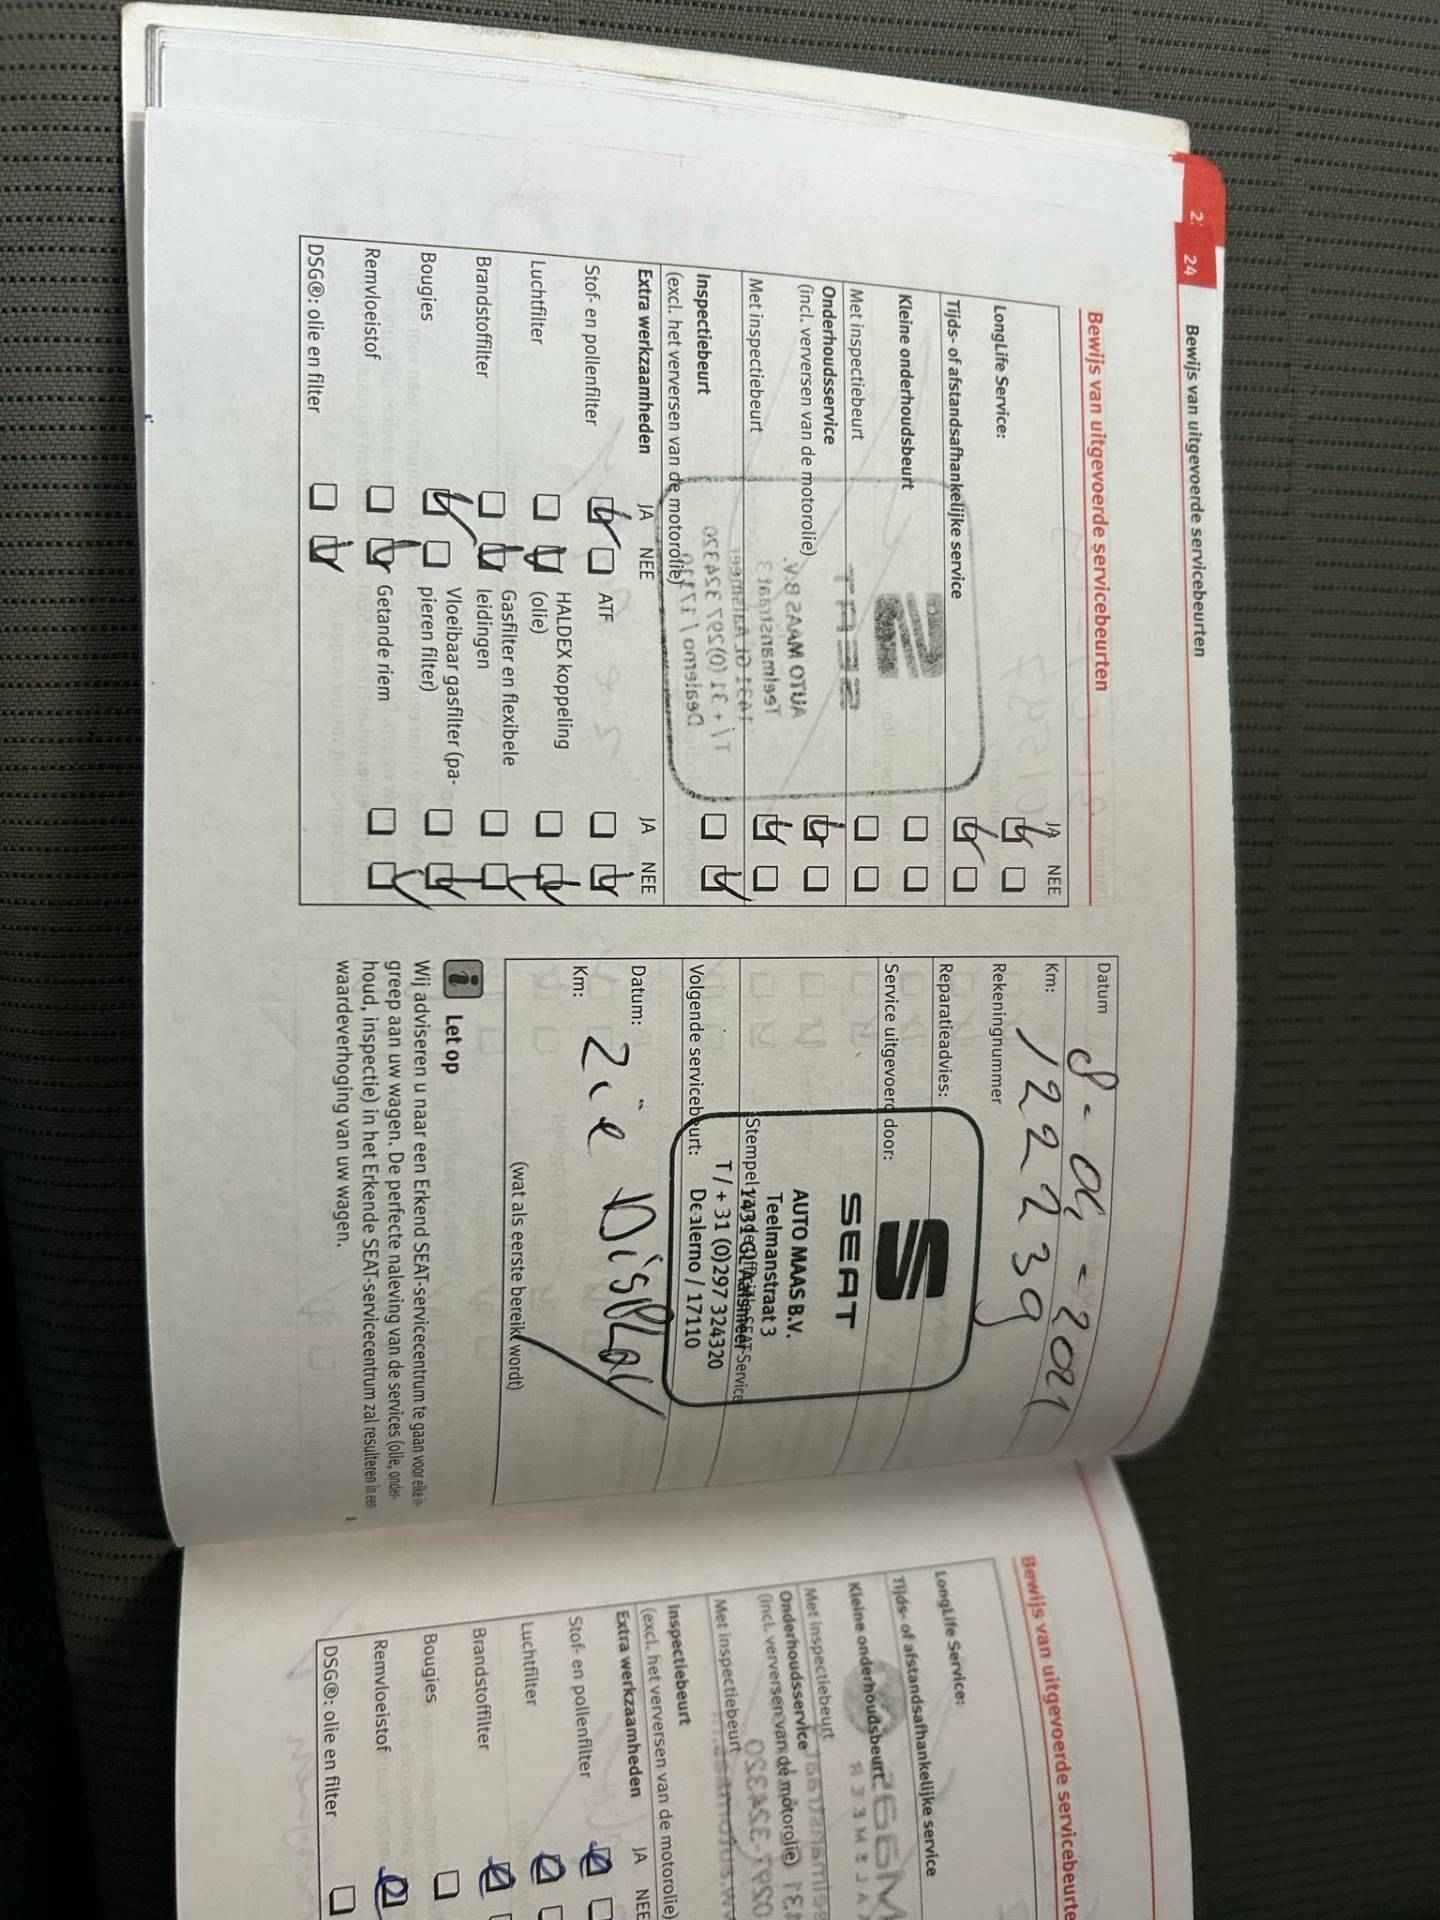 24
Bewijs van uitgevoerde servicebeurten
Bewijs van uitgevoerde servicebeurten
JA NEE
LongLife Service:
Tijds- of afstandsafhankelijke service
Kleine onderhoudsbeurt
Met inspectiebeurt
Onderhoudsservice
(incl. verversen van de motorolie)
Met inspectiebeurt
Inspectiebeurt
(excl. het verversen van de motorolie)
Extra werkzaamheden JA NEE JA NEE
Stof- en pollenfilter ATF
Luchtfilter HALDEX koppeling
(olie)
Brandstoffilter Gasfilter en flexibele
leidingen
Bougies Vloeibaar gasfilter (pa-
pieren filter)
Remvloeistof Getande riem
DSG®: olie en filter
Datum 8-04-2021
Km: 122239
Rekeningnummer
Reparatieadvies:
Service uitgevoerd door:
SEAT
AUTO MAAS B.V.
Teelmanstraat 3
Stempel van de Officiële SEAT-Service
1431 GL Aalsmeer
T / + 31 (0)297 324320
Dealerno / 17110
Volgende servicebeurt:
Datum: Zie Display
Km:
(wat als eerste bereikt wordt)
Let op
Wij adviseren u naar een Erkend SEAT-servicecentrum te gaan voor elke in-
greep aan uw wagen. De perfecte naleving van de services (olie, onder-
houd, inspectie) in het Erkende SEAT-servicecentrum zal resulteren in een
waardeverhoging van uw wagen.
Bewijs van uitgevoerde servicebeurte
LongLife Service:
Tijds- of afstandsafhankelijke service
Kleine onderhoudsbeurt
Met inspectiebeurt
Onderhoudsservice
(incl. verversen van de motorolie)
Met inspectiebeurt
Inspectiebeurt
(excl. het verversen van de motorolie)
Extra werkzaamheden JA NEE
Stof- en pollenfilter
Luchtfilter
Brandstoffilter
Bougies
Remvloeistof
DSG®: olie en filter